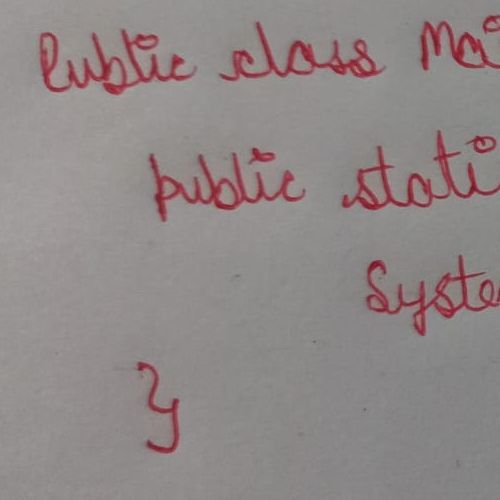 Public class Mai
public stati
Syste
}